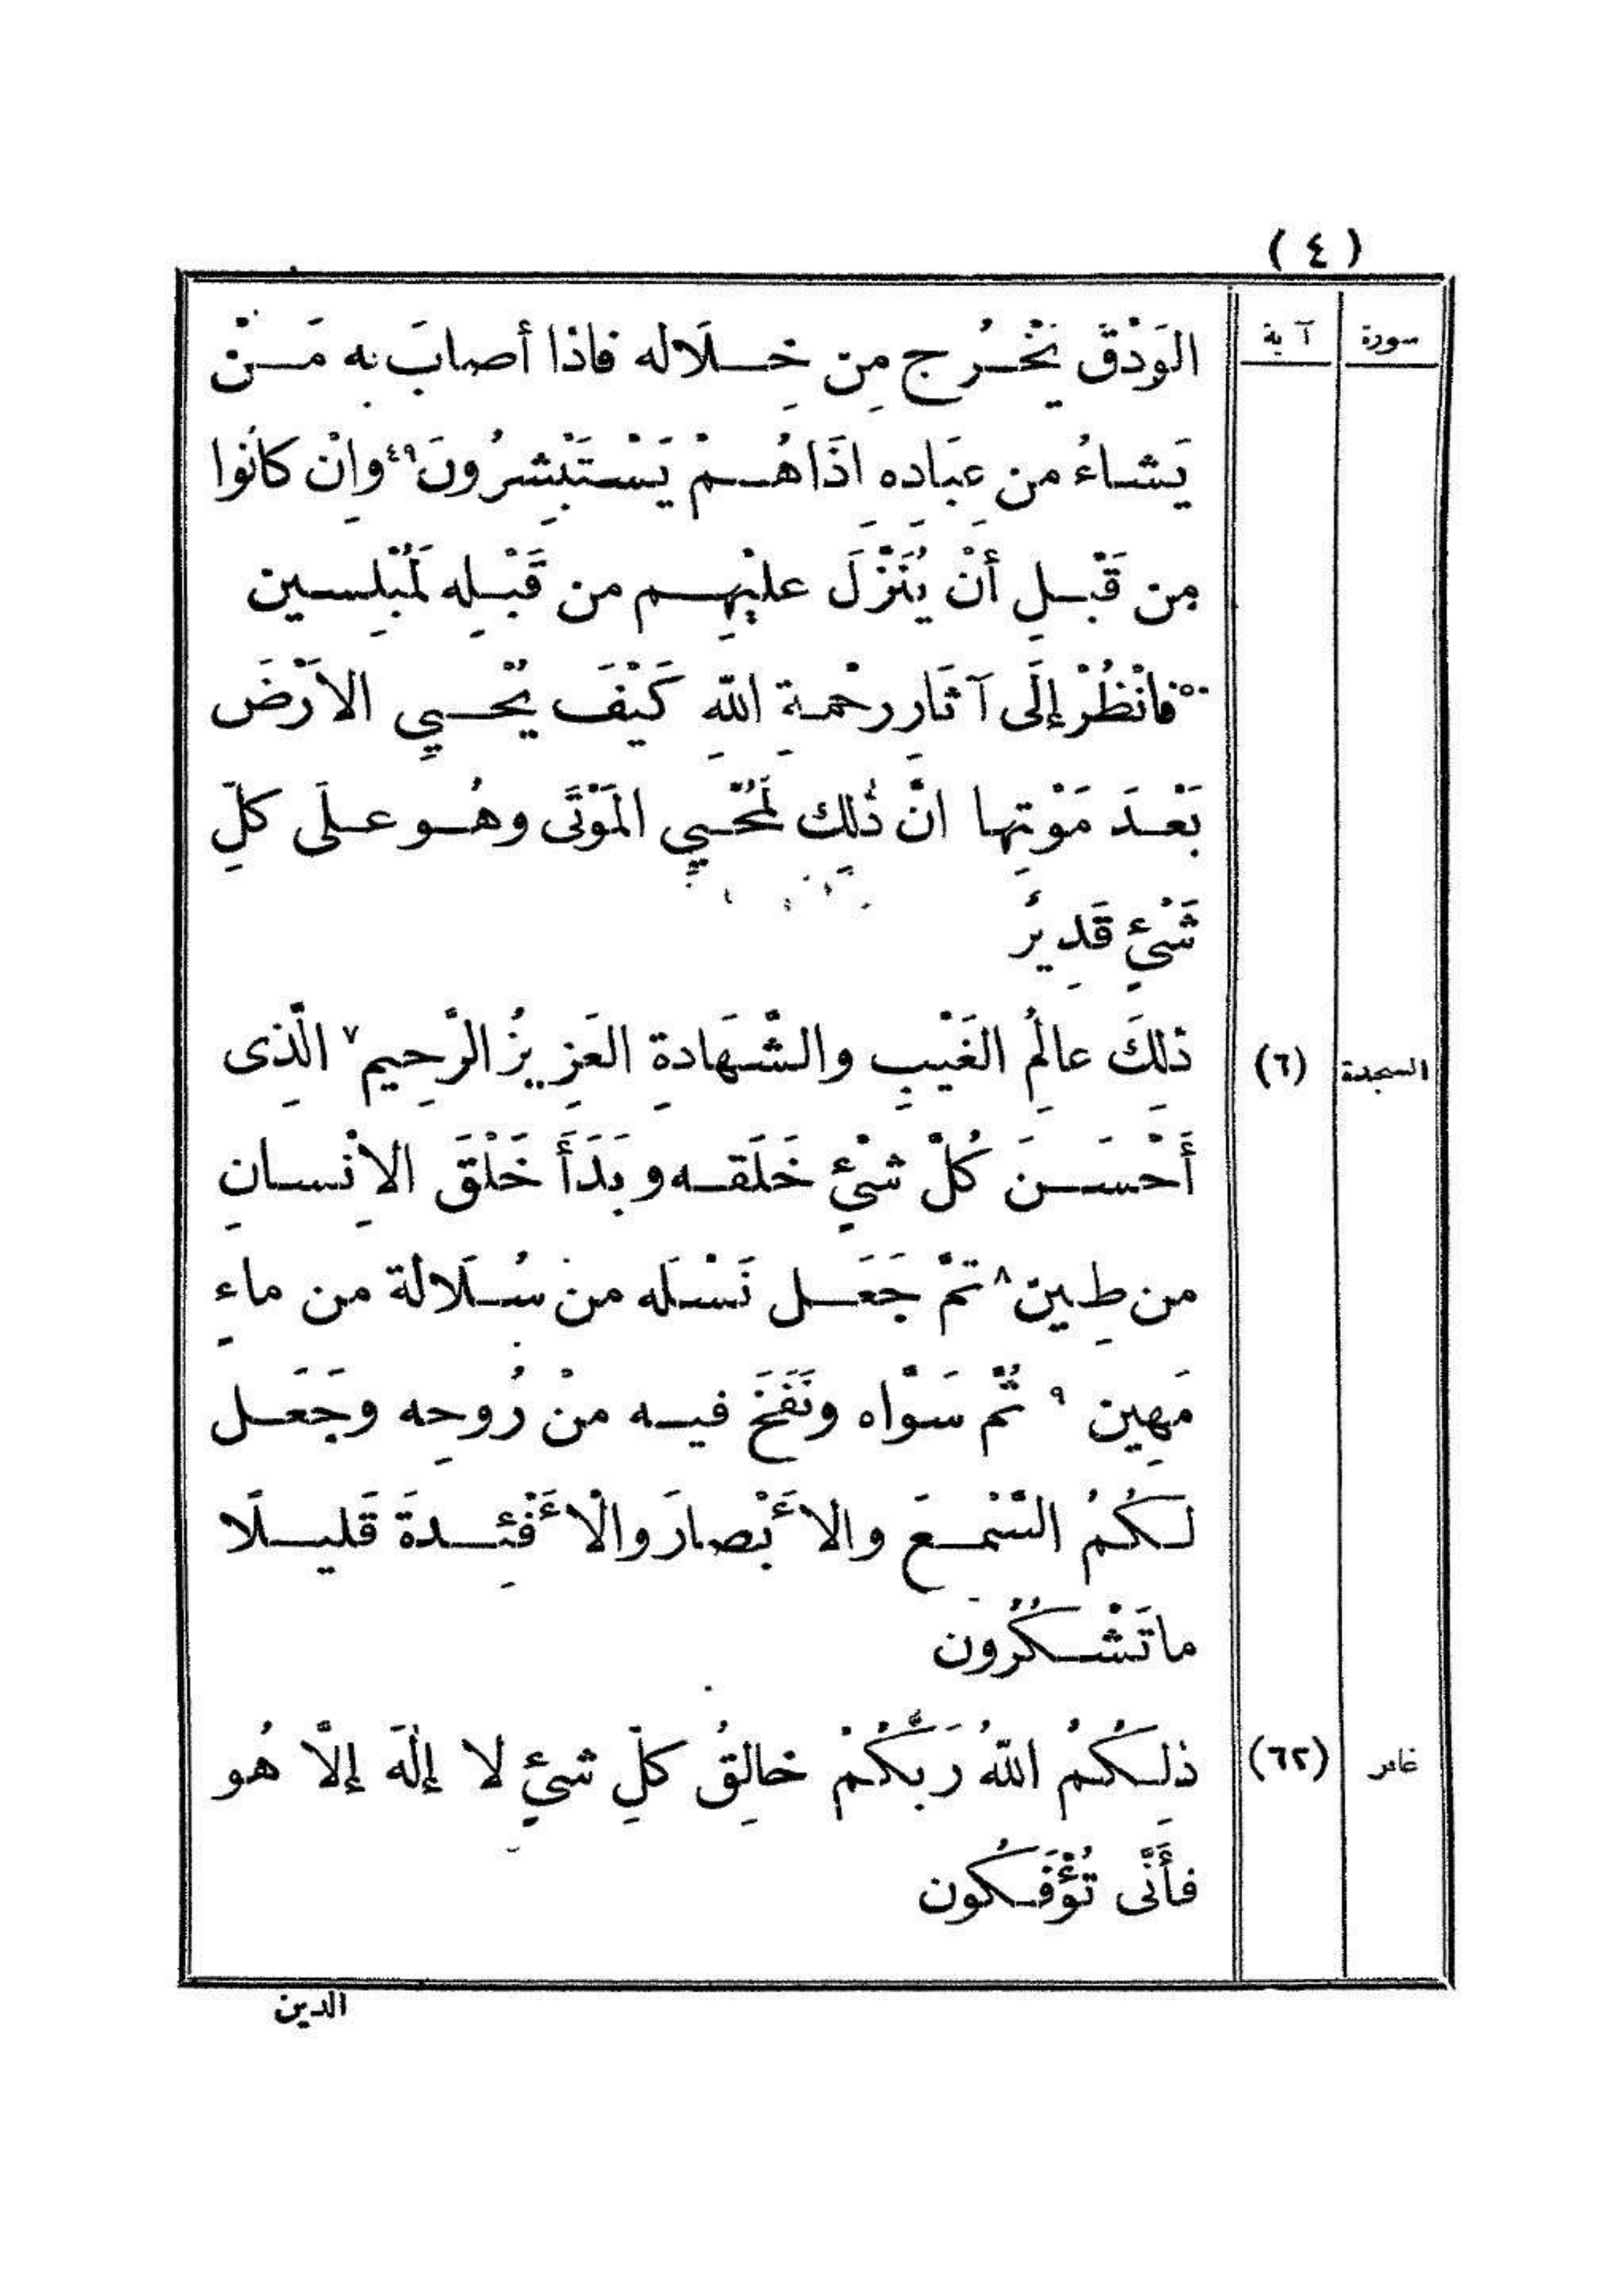 ( ٤ )
سورة آية
الوَدْقَ يَخْرُج مِن خِلَاله فاذا أصابَ به مَنْ
يَشاءُ من عِبَادِهِ اذَا هُمْ يَسْتَبْشِرُونَ ٤٩ وانْ كانُوا
مِن قَبْلِ أنْ يُنَزَّلَ عليْهِم من قَبْلِه لَمُبْلِسين
٥٠ فانْظُرْ إلَى آثَارِ رحْمةِ اللّهِ كَيْفَ يُحْيِي الاَرْضَ
بَعْدَ مَوْتِها انَّ ذٰلِك لَمُحْيِي المَوْتَى وهُو علَى كلِّ
شَيْءٍ قَدِيرُ
السجدة (٦) ذلِكَ عالِمُ الغَيْبِ والشَّهَادةِ العَزِيزُ الرَّحِيم ٧ الَّذِى
أَحْسَنَ كُلَّ شيْءٍ خَلَقه وبَدَأَ خَلْقَ الاِنْسانِ
من طِين ٨ ثمَّ جَعَل نَسْلَه منْ سُلَالة من ماءٍ
مَهِين ٩ ثُمَّ سَوَّاه ونَفَخَ فيه منْ رُوحِه وجَعَل
لكُمُ السَّمْعَ والأَبْصارَ والْأَفْئِدةَ قَليلًا
ما تَشْكُرُون
غافر (٦٢) ذلِكُمُ اللّهُ رَبُّكُمْ خالِقُ كلِّ شيْءٍ لا إلٰهَ إلَّا هُو
فأَنَّى تُؤْفَكُون
الدين